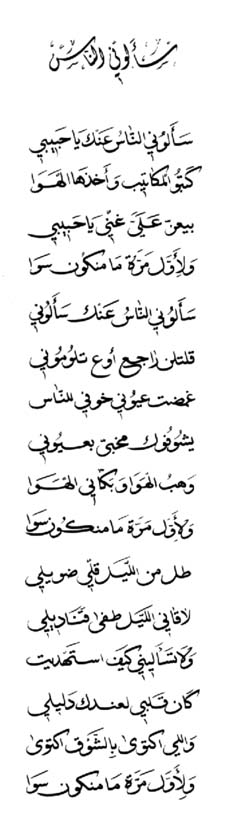 سألوني الناس
سألوني الناس عنك يا حبيبي
كتبوا المكاتيب وأخذها الهوا
بيعز علي غني يا حبيبي
ولأول مرة ما منكون سوا
سألوني الناس عنك سألوني
قلتلن راجع أوع تلوموني
غمضت عيوني خوفي للناس
يشوفوك مخبى بعيوني
وهب الهوا وبكاني الهوا
ولأول مرة ما منكون سوا
طل من الليل قلي ضويلي
لاقاني الليل طفى قناديلي
ولا تسأليني كيف استهديت
كان قلبي لعندك دليلي
واللي اكتوى بالشوق اكتوى
ولأول مرة ما منكون سوا